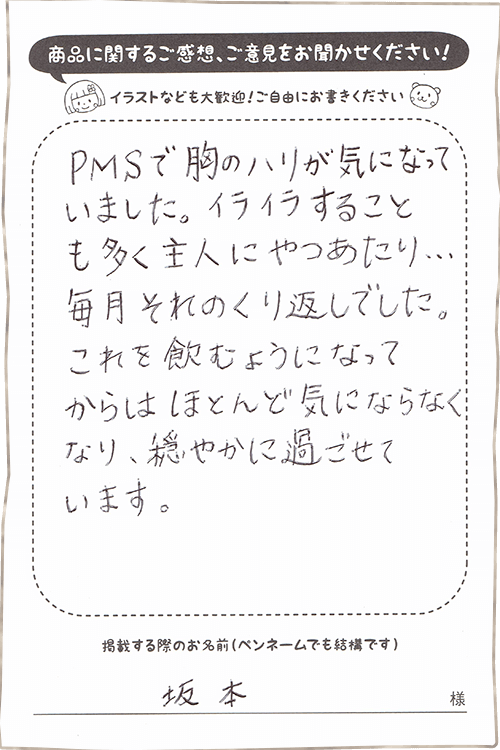 商品に関するご感想、ご意見をお聞かせください!
イラストなども大歓迎!ご自由にお書きください
PMSで胸のハリが気になって
いました。イライラすること
も多く主人にやつあたり…
毎月それのくり返しでした。
これを飲むようになって
からはほとんど気にならなく
なり、穏やかに過ごせて
います。
掲載する際のお名前(ペンネームでも結構です)
坂本 様